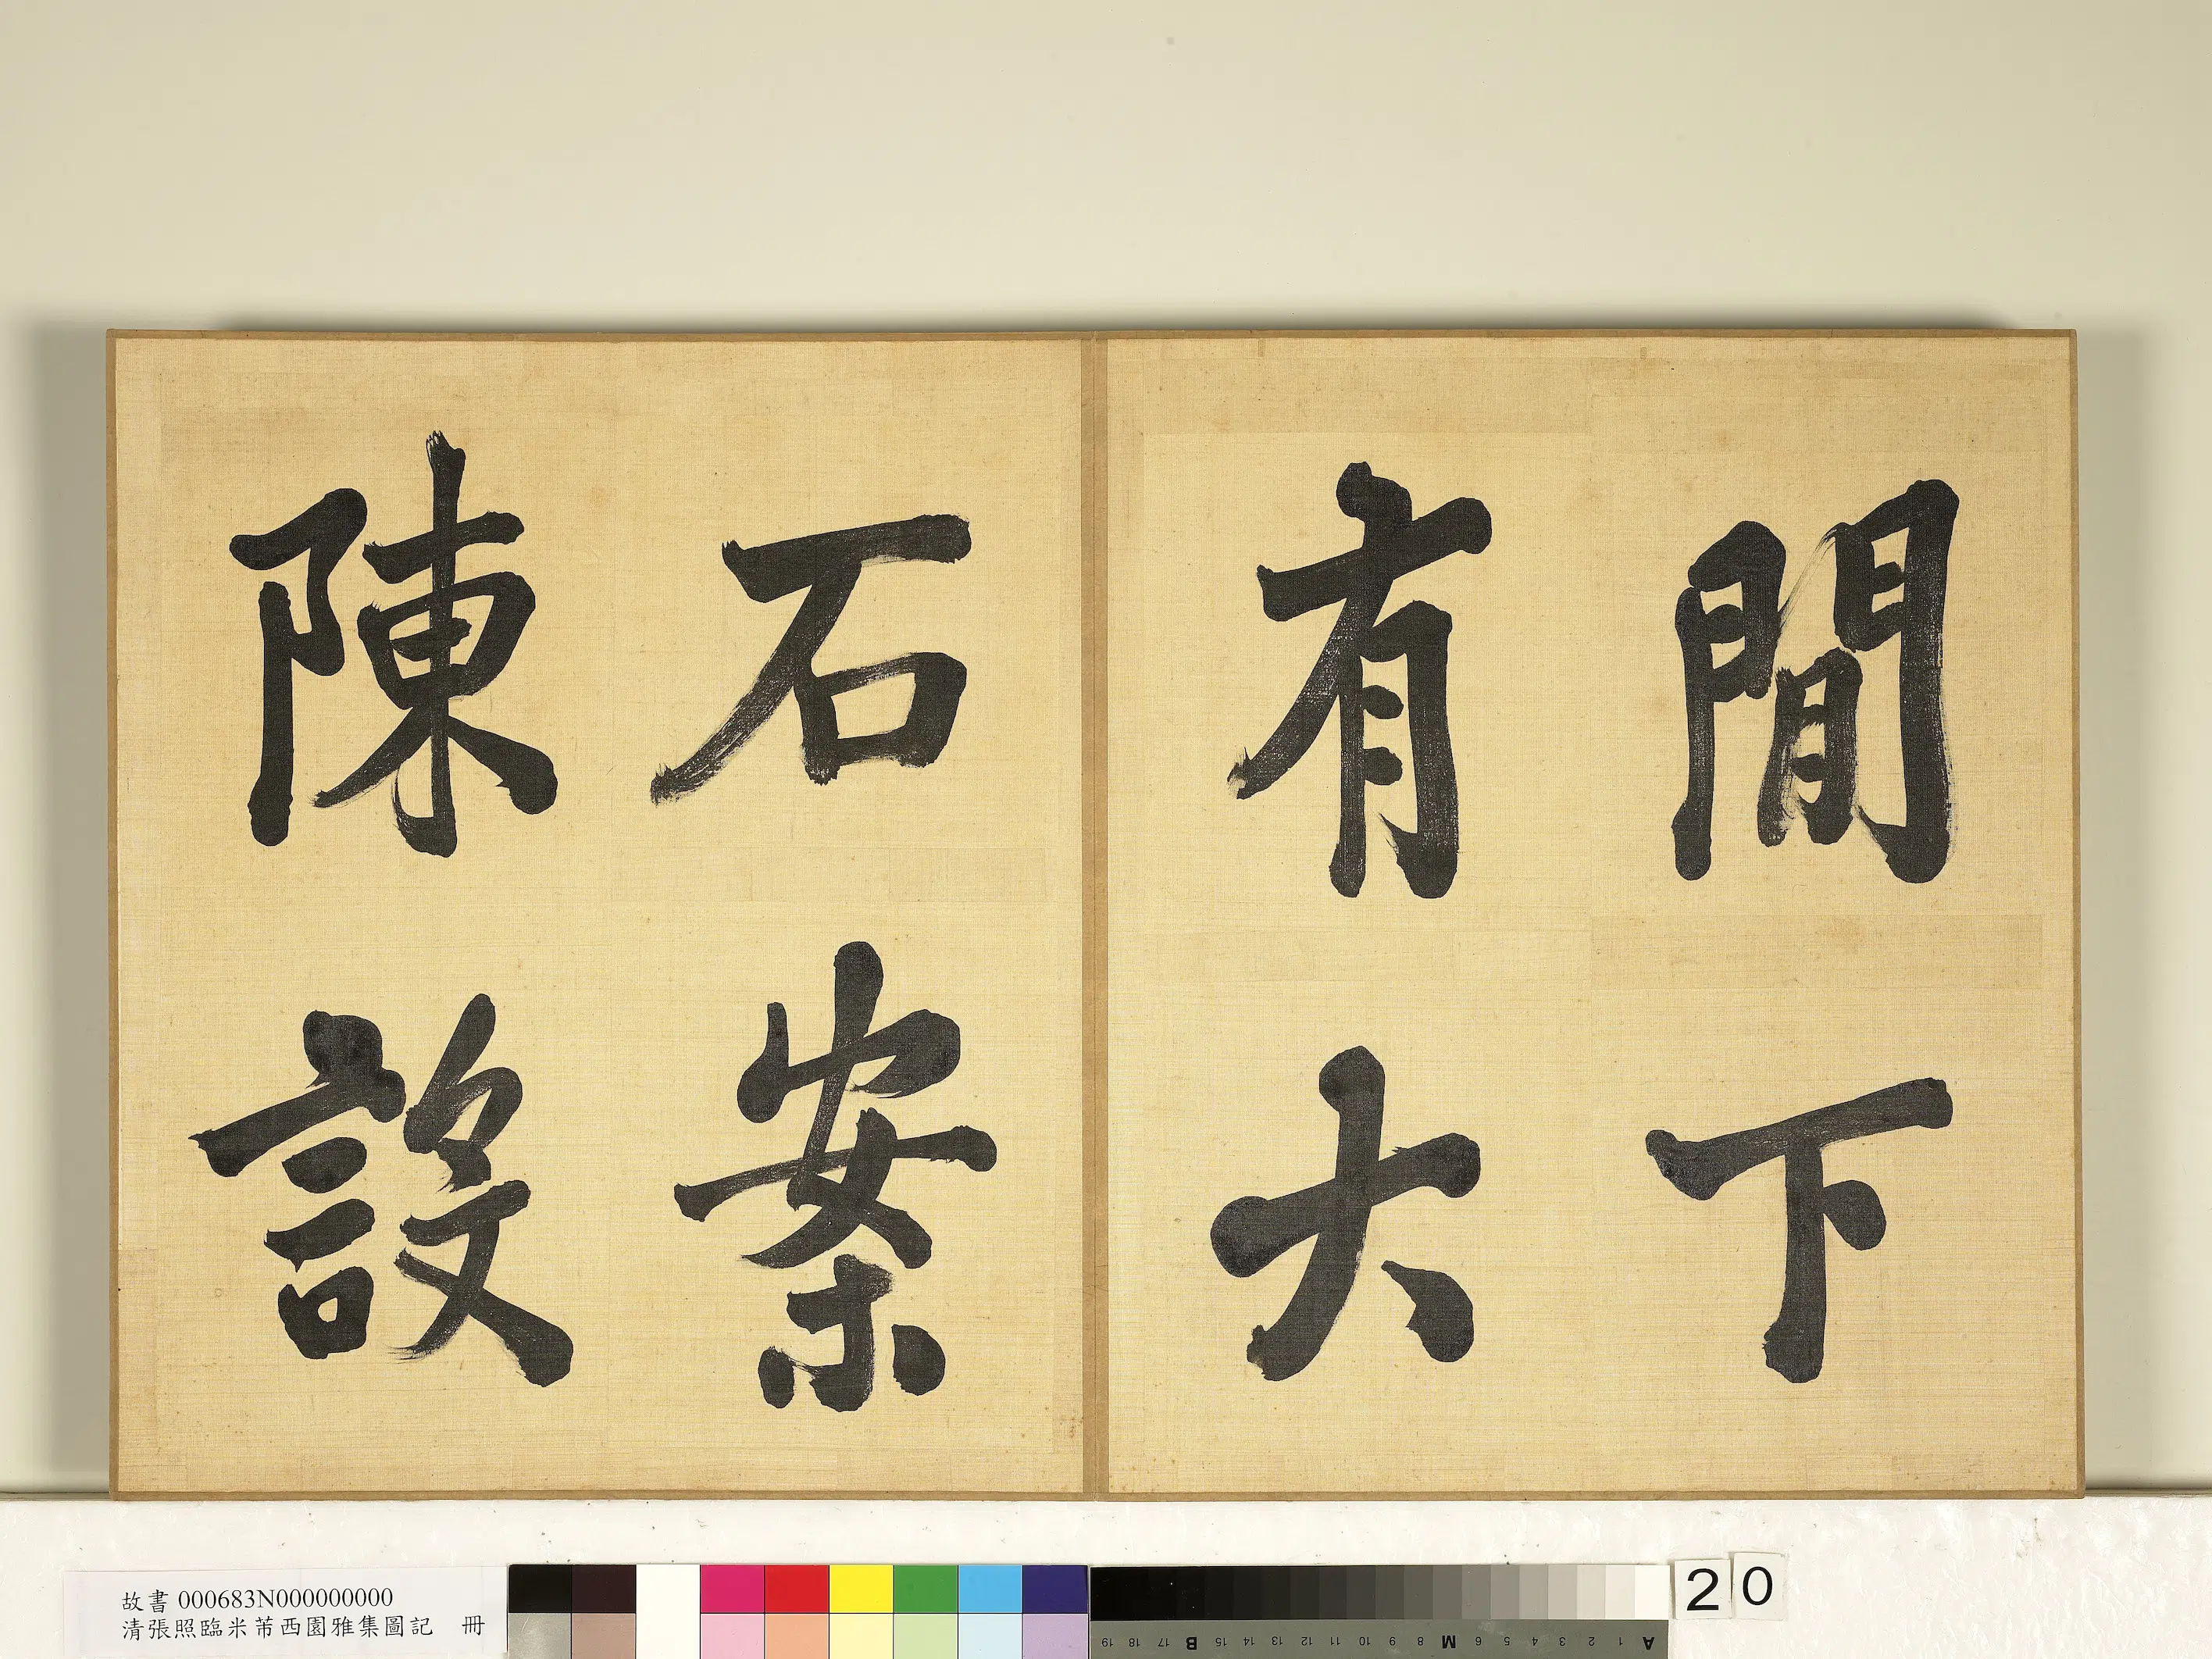 閒下
有大
石案
陳設
故書 000683N000000000
清張照臨米芾西園雅集圖記 冊
20
19 18 17 B 15 14 13 12 11 10 9 8 M 6 5 4 3 2 1 A